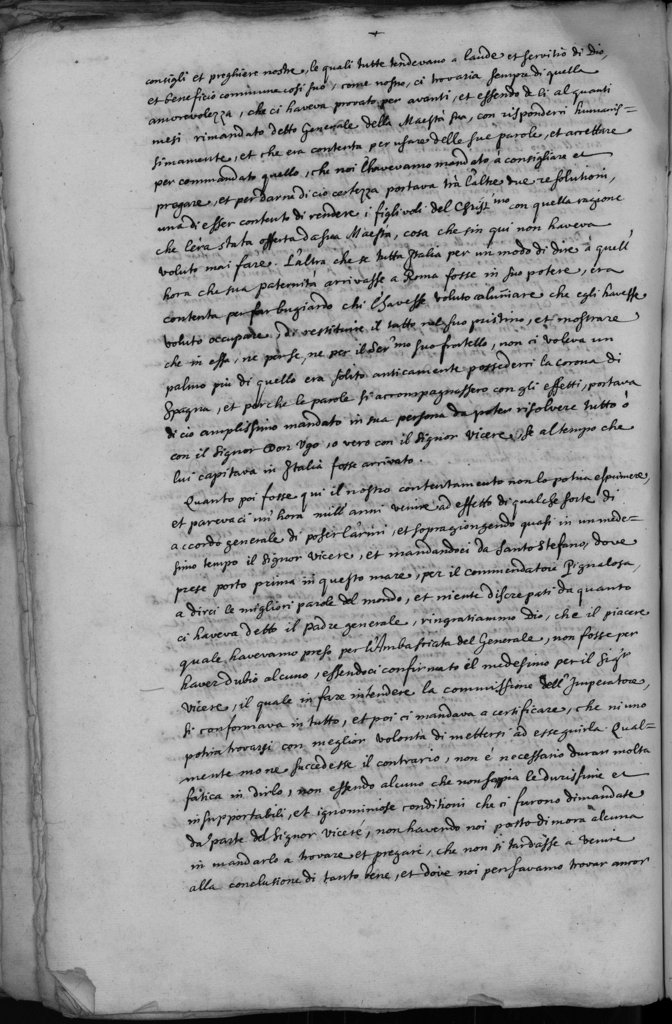 consigli et preghiere nostre, le quali tutte tendevano a laude et servitio di Dio,
et beneficio commune cosi suo, come nostro, ci trovaria sempre di quella
amorevolezza, che ci haveva provato per avanti, et essendo de li alquanti
mesi rimandato detto Generale della Maestà sua, con risponderci humanis=
simamente, et che era contenta per usare delle sue parole, et accettare
per commandato quello, che noi l'havevamo mandato a consigliare et
pregare, et per darna di cio certezza portava trà l'altre due resolutioni,
una di esser contento di rendere i figlivoli del Christ.mo con quella ragione
che l'era stata offerta da sua Maestà, cosa che sin qui non haveva
voluto mai fare. L'altra che se tutta Italia per un modo di dire à quell'
hora che sua paternità arrivasse a Roma fosse in suo potere, era
contenta per far bugiardo chi l'havesse voluto caluñiare che egli havesse
voluto occupare, di restituire il tutto nel suo pristino, et mostrare
che in essa, ne per se, ne per il Ser.mo suo fratello, non ci voleva un
palmo più di quello era solito anticamente possederci la corona di
Spagna, et perche le parole si accompagnassero con gli effetti, portava
di cio amplissimo mandato in sua persona da poter risolvere tutto ò
con il signor Don Ugo, o vero con il signor Vicere, se al tempo che
lui capitava in Italia fosse arrivato.
Quanto poi fosse qui il nostro contentamento non lo potria esprimere,
et parevaci un' hora mill' anni venire ad effetto di qualche sorte di
accordo generale di poser l'armi, et sopragiongendo quasi in un mede=
simo tempo il signor Vicere, et mandandoci da Santo Stefano, dove
prese porto prima in questo mare, per il commendatore Pignalosa,
a dirci le migliori parole del mondo, et niente discrepati da quanto
ci haveva detto il Padre generale, ringratiammo Dio, che il piacere
quale havevamo preso per l'Ambasciata del Generale, non fosse per
haver dubio alcuno, essendoci confirmato el medesimo per il Sig.r
Vicere, il quale in fare intendere la commissione dell' Imperatore,
si conformava in tutto, et poi ci mandava a certificare, che niuno
potria trovarsi con meglior volontà di mettersi ad esseguirla. Qual=
mente mo ne succedesse il contrario, non è necessario durar molta
fatica in dirlo, non essendo alcuno che non sappia le durissime et
insupportabili, et ignominiose conditioni che ci furono dimandate
da parte del signor Vicere, non havendo noi posto dimora alcuna
in mandarlo a trovare et pregare, che non si tardasse a venire
alla conclusione di tanto bene, et dove noi pensavamo trovar ancor